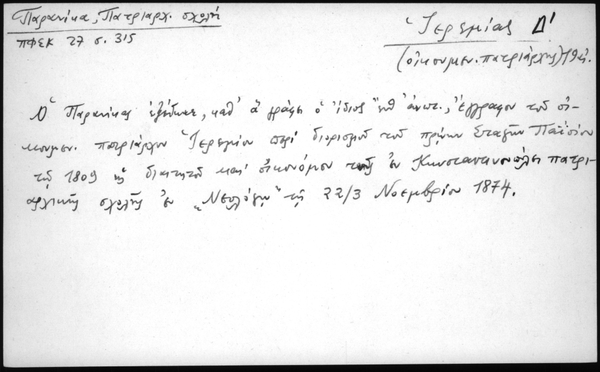 Παρανίκα, Πατριαρχ. σχολή
ΠΦΣΚ 27 σ. 315
Ἱερεμίας Δ'
(οἰκουμεν. πατριάρχης)
Ὁ Παρανίκας ἐξέδωκε, καθ' ἃ γράφει ὁ ἴδιος ἔγγραφον τοῦ οἰ-
κουμεν. πατριάρχου Ἱερεμίου περὶ διορισμοῦ τοῦ πρώην Σταγῶν Παϊσίου
τῷ 1809 ὡς διευθυντοῦ καὶ οἰκονόμου τῆς ἐν Κωνσταντινουπόλει πατρι-
αρχικῆς σχολῆς ἐν "Νεολόγῳ" τῇ 22/3 Νοεμβρίου 1874.